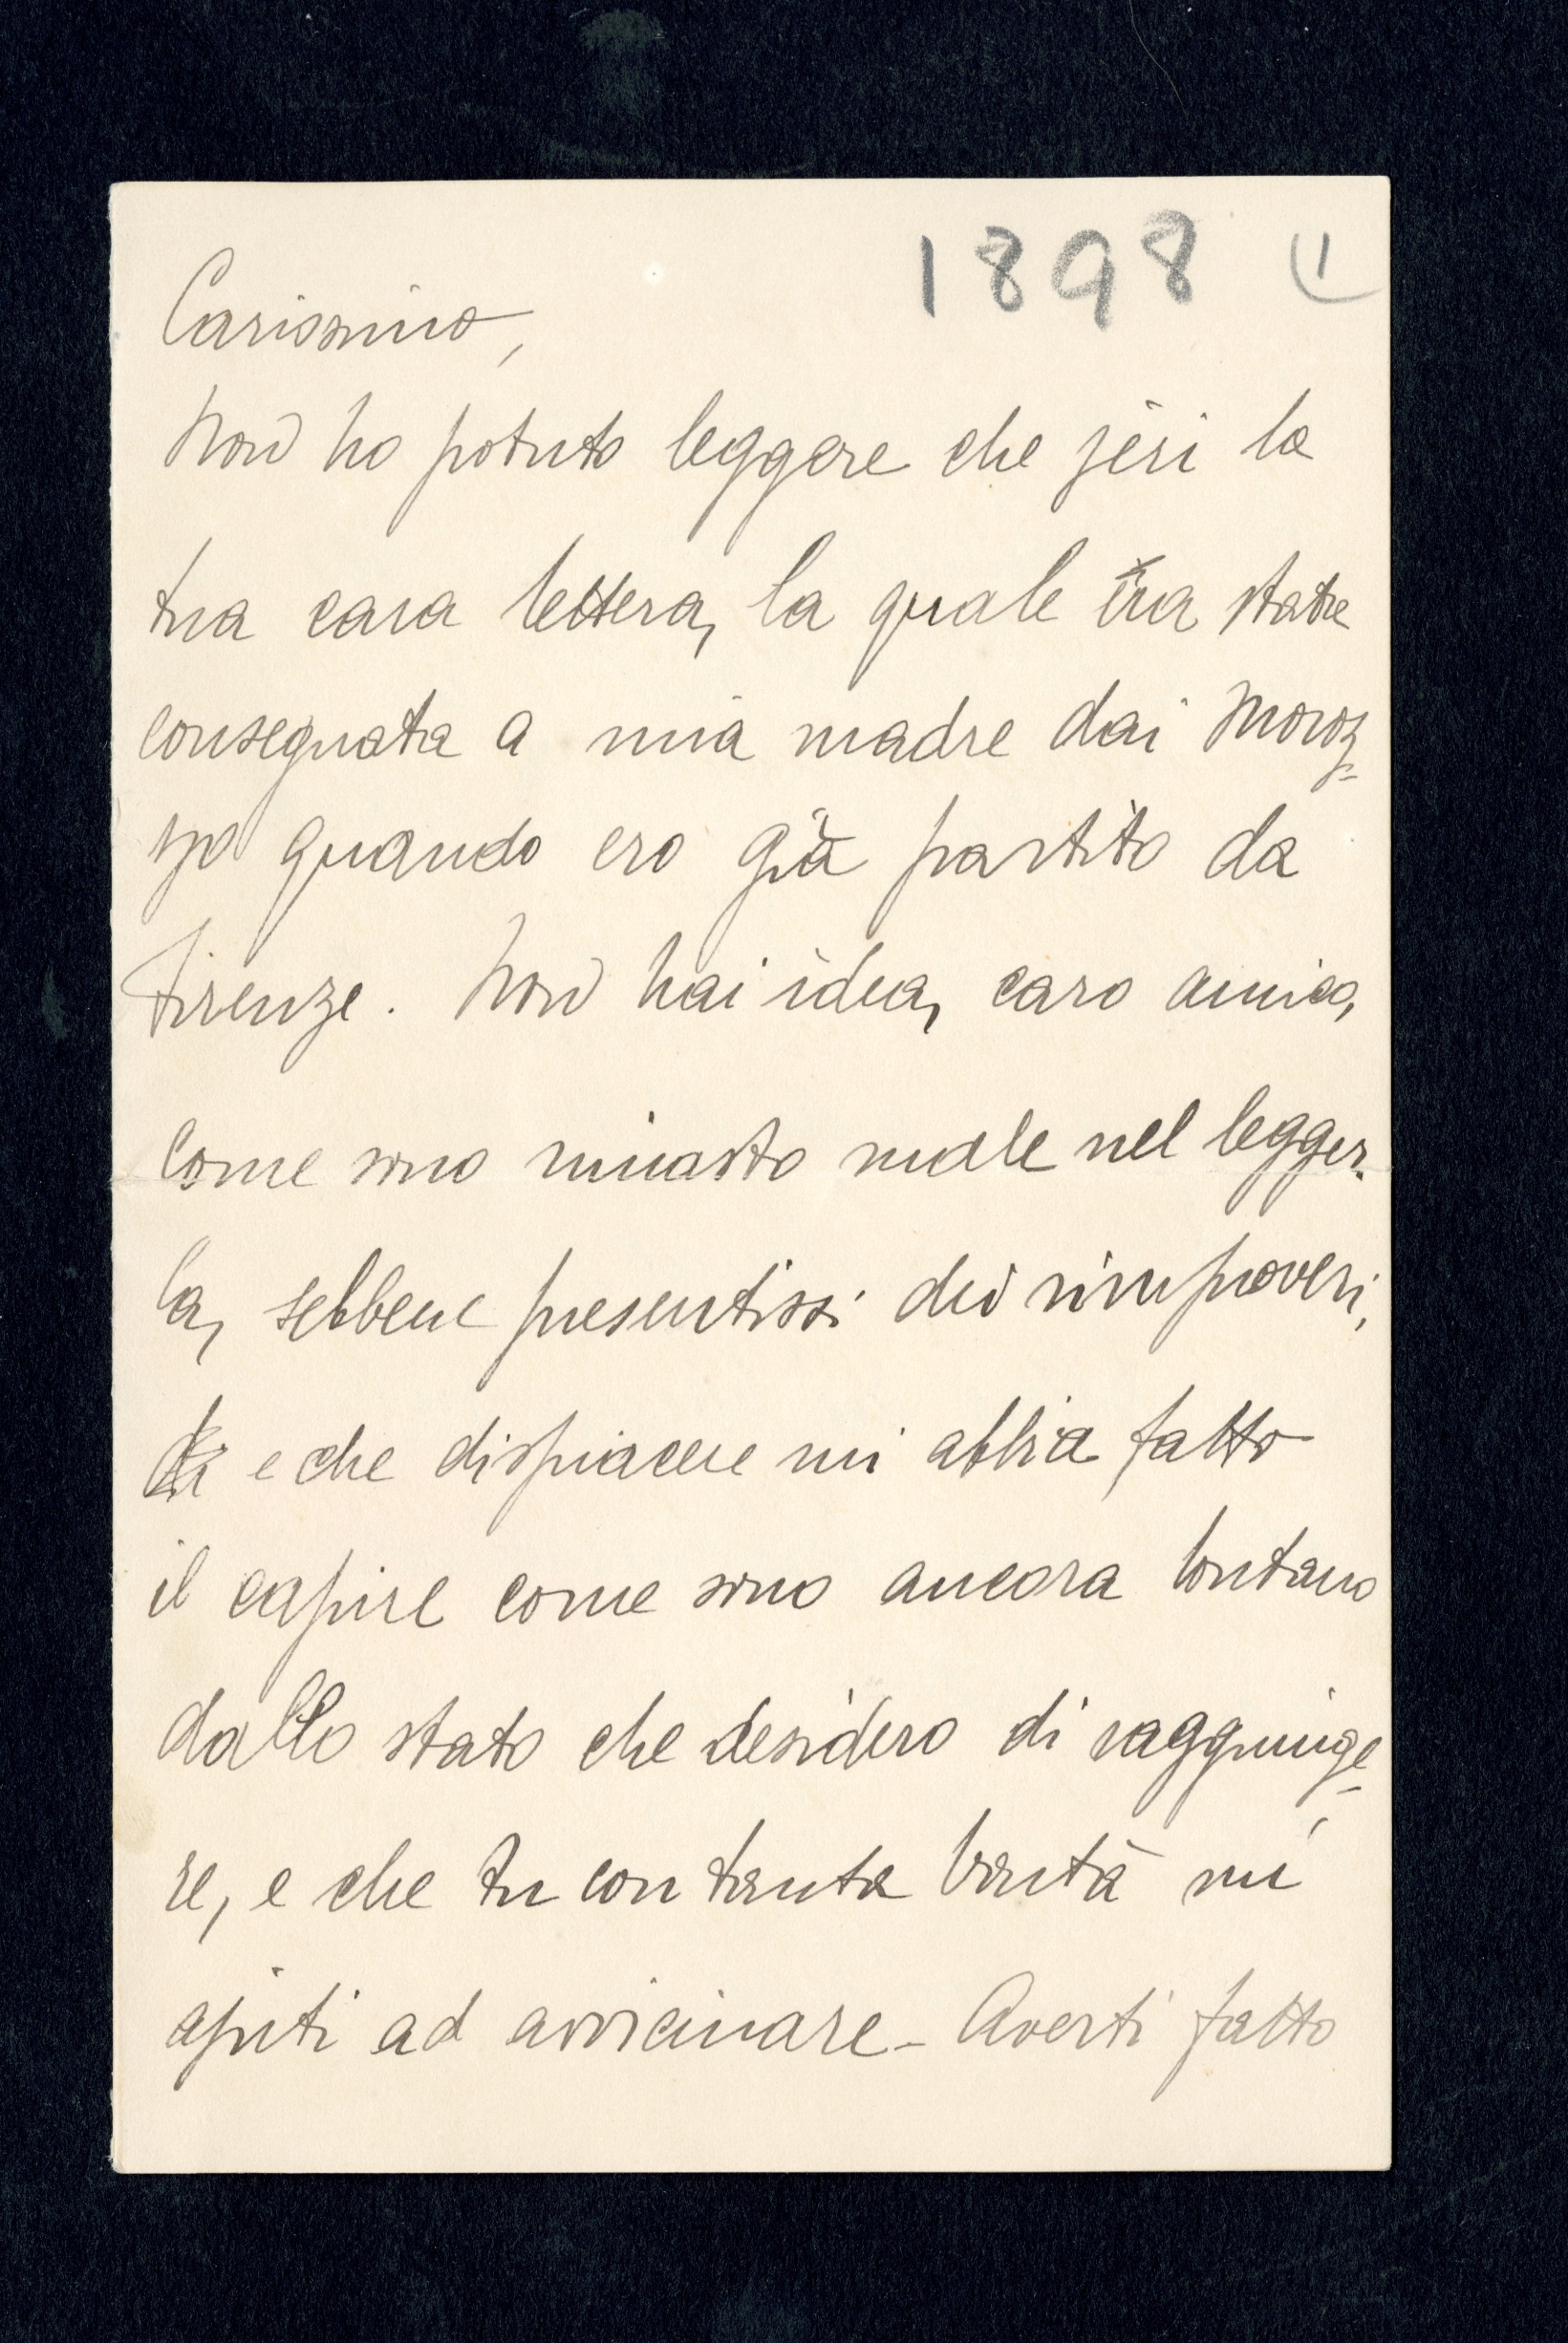 1898 1)
Carissimo,
Non ho potuto leggere che jeri la
tua cara lettera, la quale era stata
consegnata a mia madre dai Moroz-
zo quando ero già partito da
Firenze. Non hai idea, caro amico,
come sono rimasto male nel legger-
la, sebbene presentissi dei rimproveri,
e che dispiacere mi abbia fatto
il capire come sono ancora lontano
dallo stato che desidero di raggiunge-
re, e che tu con tanta bontà mi
ajuti ad avvicinare - Averti fatto